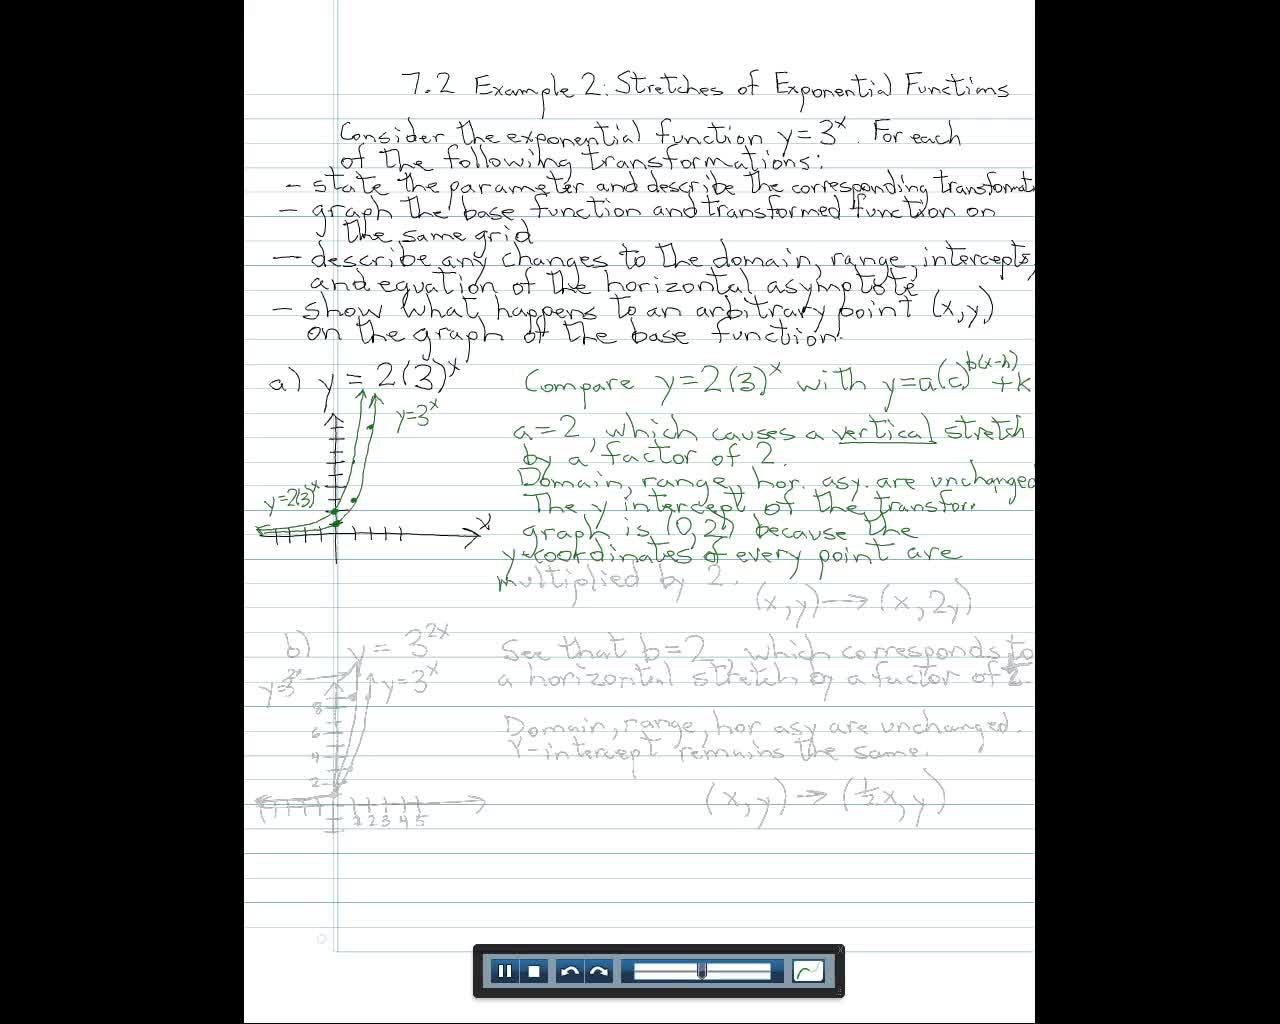 7.2 Example 2: Stretches of Exponential Functions
Consider the exponential function y = 3^x. For each
of the following transformations:
- state the parameter and describe the corresponding transformati
- graph the base function and transformed function on
the same grid
- describe any changes to the domain, range, intercepts,
and equation of the horizontal asymptote
- show what happens to an arbitrary point (x,y)
on the graph of the base function.
a) y = 2(3)^x
Compare y=2(3)^x with y=a(c)^b(x-h) + k
y=3^x
a=2, which causes a vertical stretch
by a factor of 2.
Domain, range, hor. asy. are unchanged
y=2(3)^x
The y intercept of the transfor.
graph is (0,2) because the
x
y-coordinates of every point are
multiplied by 2.
(x,y) → (x,2y)
b) y = 3^2x
See that b=2, which corresponds to
y=3^2x
y=3^x
a horizontal stretch by a factor of
8
6
4
2
1 2 3 4 5
Domain, range, hor asy are unchanged.
Y-intercept remains the same.
(x,y) → (1/2x, y)